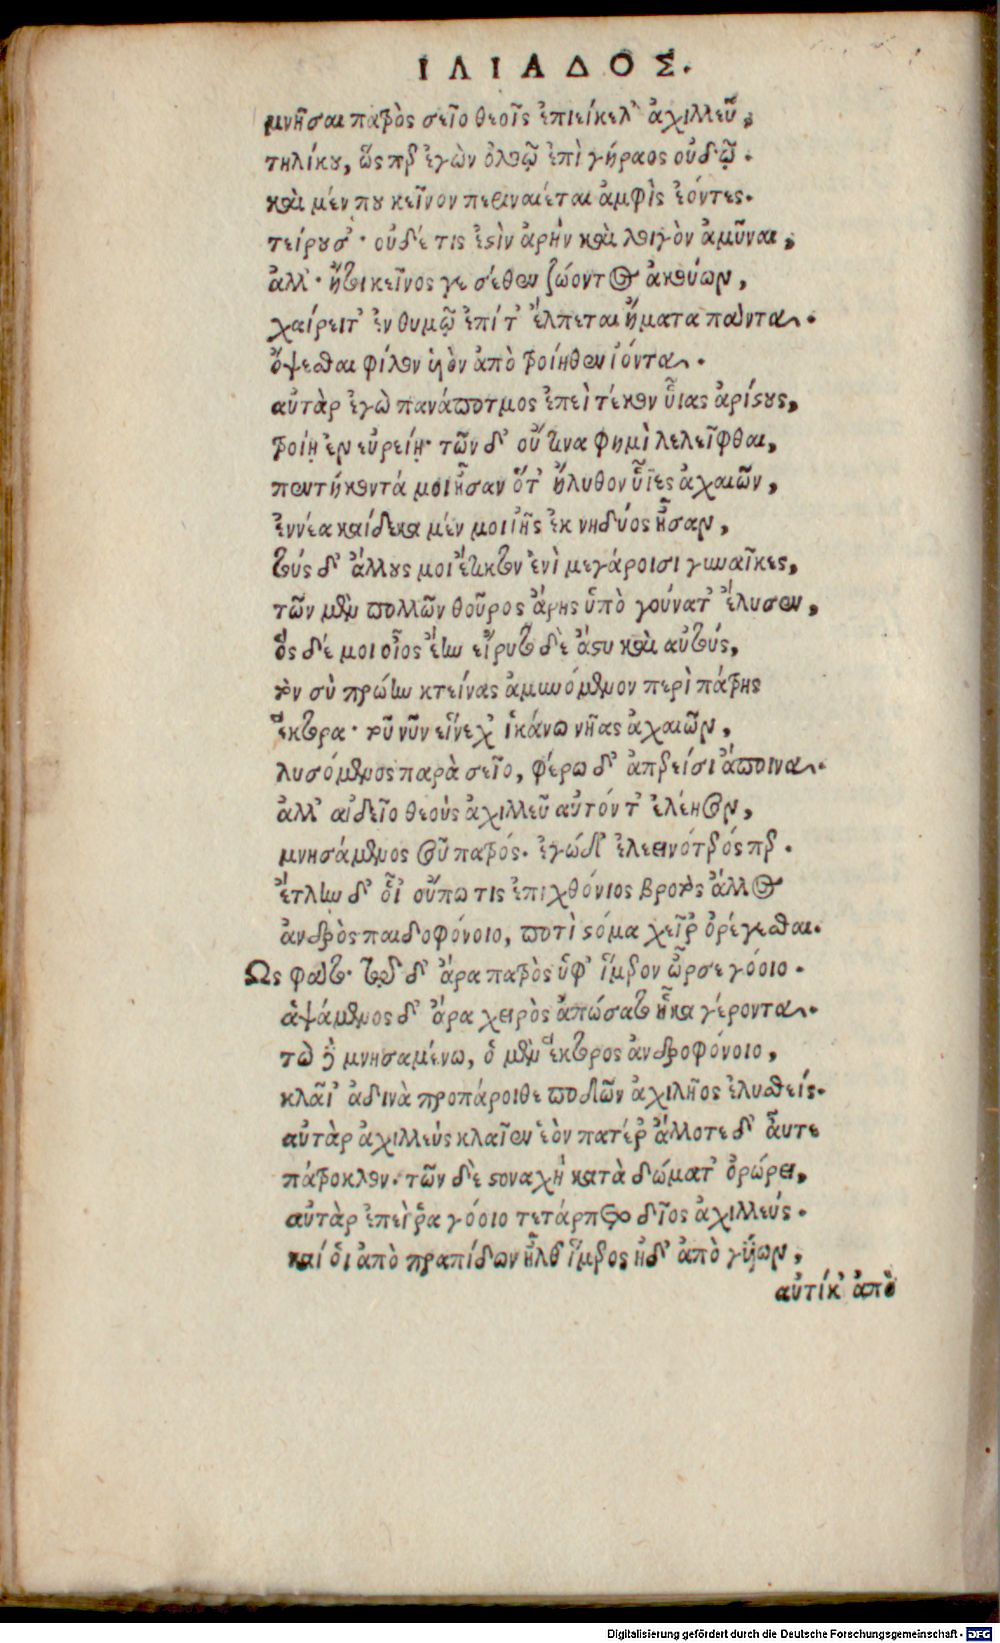 ΙΛΙΑΔΟΣ.
μνῆσαι πατρὸς σεῖο θεοῖς ἐπιείκελ' ἀχιλλεῦ,
τηλίκου, ὥς περ ἐγὼν ὀλοῷ ἐπὶ γήραος οὐδῷ.
καὶ μέν που κεῖνον περιναιέται ἀμφὶς ἐόντες.
τείρουσ'· οὐδέ τις ἐστὶν ἀρὴν καὶ λοιγὸν ἀμῦναι,
ἀλλ'· ἤτοι κεῖνος γε σέθεν ζώοντος ἀκούων,
χαίρει τ' ἐν θυμῷ ἐπί τ' ἔλπεται ἤματα πάντα.
ὄψεσθαι φίλον ὑὸν ἀπὸ τροίηθεν ἰόντα.
αὐτὰρ ἐγὼ πανάποτμος ἐπεὶ τέκον υἷας ἀρίστους,
τροίῃ ἐν εὐρείῃ· τῶν δ' οὔ τινα φημὶ λελεῖφθαι,
πεντήκοντά μοι ἦσαν ὅτ' ἤλυθον υἷες ἀχαιῶν,
ἐννέα καίδεκα μέν μοι ἰῆς ἐκ νηδύος ἦσαν,
τοὺς δ' ἄλλους μοι ἔτικτον ἐνὶ μεγάροισι γυναῖκες,
τῶν μὲν πολλῶν θοῦρος ἄρης ὑπὸ γούνατ' ἔλυσεν,
ὅς δέ μοι οἶος ἔην εἴρυτο δὲ ἄστυ καὶ αὐτούς,
τὸν σὺ πρώην κτείνας ἀμυνόμενον περὶ πάτρης
ἕκτορα· τοῦ νῦν εἵνεχ' ἱκάνω νῆας ἀχαιῶν,
λυσόμενος παρὰ σεῖο, φέρω δ' ἀπερείσι' ἄποινα.
ἀλλ' αἰδεῖο θεοὺς ἀχιλλεῦ αὐτόν τ' ἐλέησον,
μνησάμενος σοῦ πατρός. ἐγώ δ' ἐλεεινότερός περ.
ἔτλην δ' οἷ' οὔπω τις ἐπιχθόνιος βροτὸς ἄλλος
ἀνδρὸς παιδοφόνοιο, ποτὶ στόμα χεῖρ' ὀρέγεσθαι.
Ως φάτο· τῷ δ' ἄρα πατρὸς ὑφ' ἵμερον ὦρσε γόοιο.
ἁψάμενος δ' ἄρα χειρὸς ἀπώσατο ἦκα γέροντα.
τὼ δὲ μνησαμένω, ὁ μὲν ἕκτορος ἀνδροφόνοιο,
κλαῖ' ἀδινὰ προπάροιθε ποδῶν ἀχιλῆος ἐλυσθείς.
αὐτὰρ ἀχιλλεὺς κλαῖεν ἑὸν πατέρ' ἄλλοτε δ' αὖτε
πάτροκλον. τῶν δὲ στοναχὴ κατὰ δώματ' ὀρώρει,
αὐτὰρ ἐπεί ῥα γόοιο τετάρπετο δῖος ἀχιλλεύς.
καί οἱ ἀπὸ πραπίδων ἦλθ' ἵμερος ἠδ' ἀπὸ γυίων,
αὐτίκ' ἀπὸ
Digitalisierung gefördert durch die Deutsche Forschungsgemeinschaft - DFG